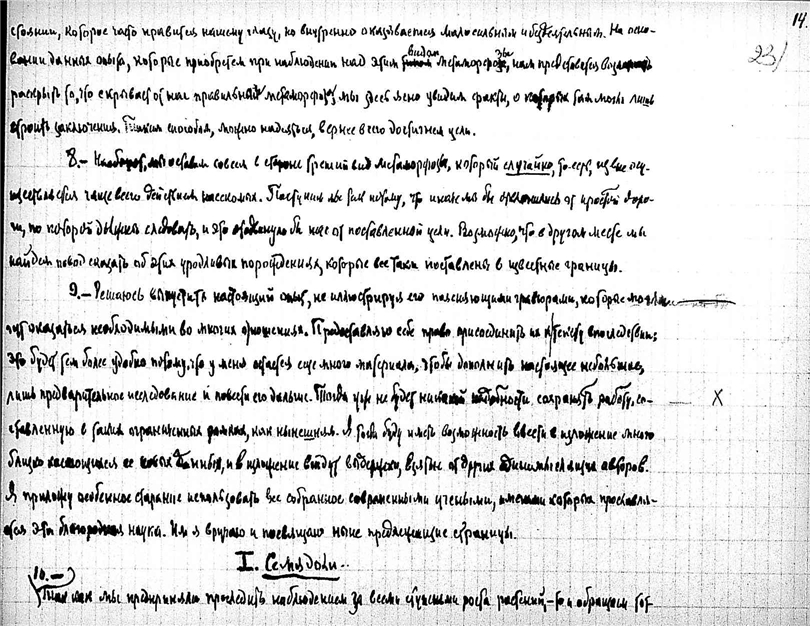 14.
23/
стоянии, которое часто нравится нашему глазу, но внутренно оказывается малосильным и бездеятельным. На осно-
вании данных опыта, которые приобретем при наблюдении над этим видом метаморфозы, нам представится возможность
раскрыть то, что скрывает от нас правильный метаморфоз, мы здесь ясно увидим факты, о которых там могли лишь
строить заключения. Таким способом, можно надеяться, вернее всего достигнем цели.
8.– мы оставим совсем в стороне третий вид метаморфозы, который случайно, то-есть, извне осу-
ществляется чаще всего действием насекомых. Поступим мы так потому, что иначе мы бы отклонились от простой доро-
ги, по которой должны следовать, и это отодвинуло бы нас от поставленной цели. Возможно, что в другом месте мы
найдем повод сказать об этих уродливых порождениях, которые все таки поставлены в известные границы.
9.– Решаюсь выпустить настоящий опыт, не иллюстрируя его поясняющими гравюрами, которые
гут оказаться необходимыми во многих отношениях. Предоставляю себе право присоединить их к тексту впоследствии;
это будет тем более удобно потому, что у меня остается еще много материала, чтобы дополнить настоящее небольшое,
лишь предварительное исследование и повести его дальше. Тогда уж не будет надобности сохранять работу, со- X
ставленную в таких ограниченных рамках, как нынешняя. Я тогда буду иметь возможность ввести в изложение много
близко касающихся ее данных, и в изложение войдут выдержки, взятые от других авторов.
Я приложу особенное старание использовать все собранное современными учеными, именами которых прославля-
ется эта благородная наука. Им я вручаю и посвящаю ныне предлежащие страницы.
I. Семядоли.
10.–
Так как мы предприняли проследить наблюдением за всеми ступенями роста растений, – то и обращаем тот